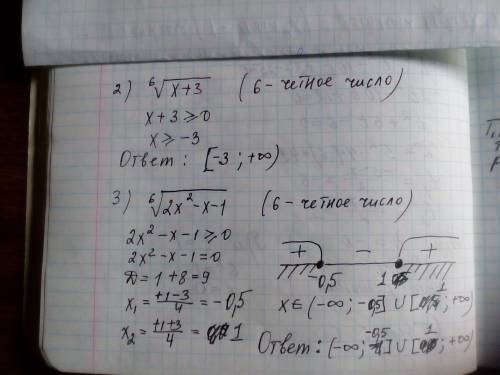 2) ⁶√(x+3) (6 - четное число)
x + 3 ≥ 0
x ≥ -3
Ответ: [-3; +∞)
3) ⁶√(2x² - x - 1) (6 - четное число)
2x² - x - 1 ≥ 0
2x² - x - 1 = 0
Д = 1 + 8 = 9
x₁ = (+1-3)/4 = -0,5
x₂ = (+1+3)/4 = 1
+ - +
-0,5 1
x ∈ (-∞; -0,5] ∪ [1; +∞)
Ответ: (-∞; -0,5] ∪ [1; +∞)